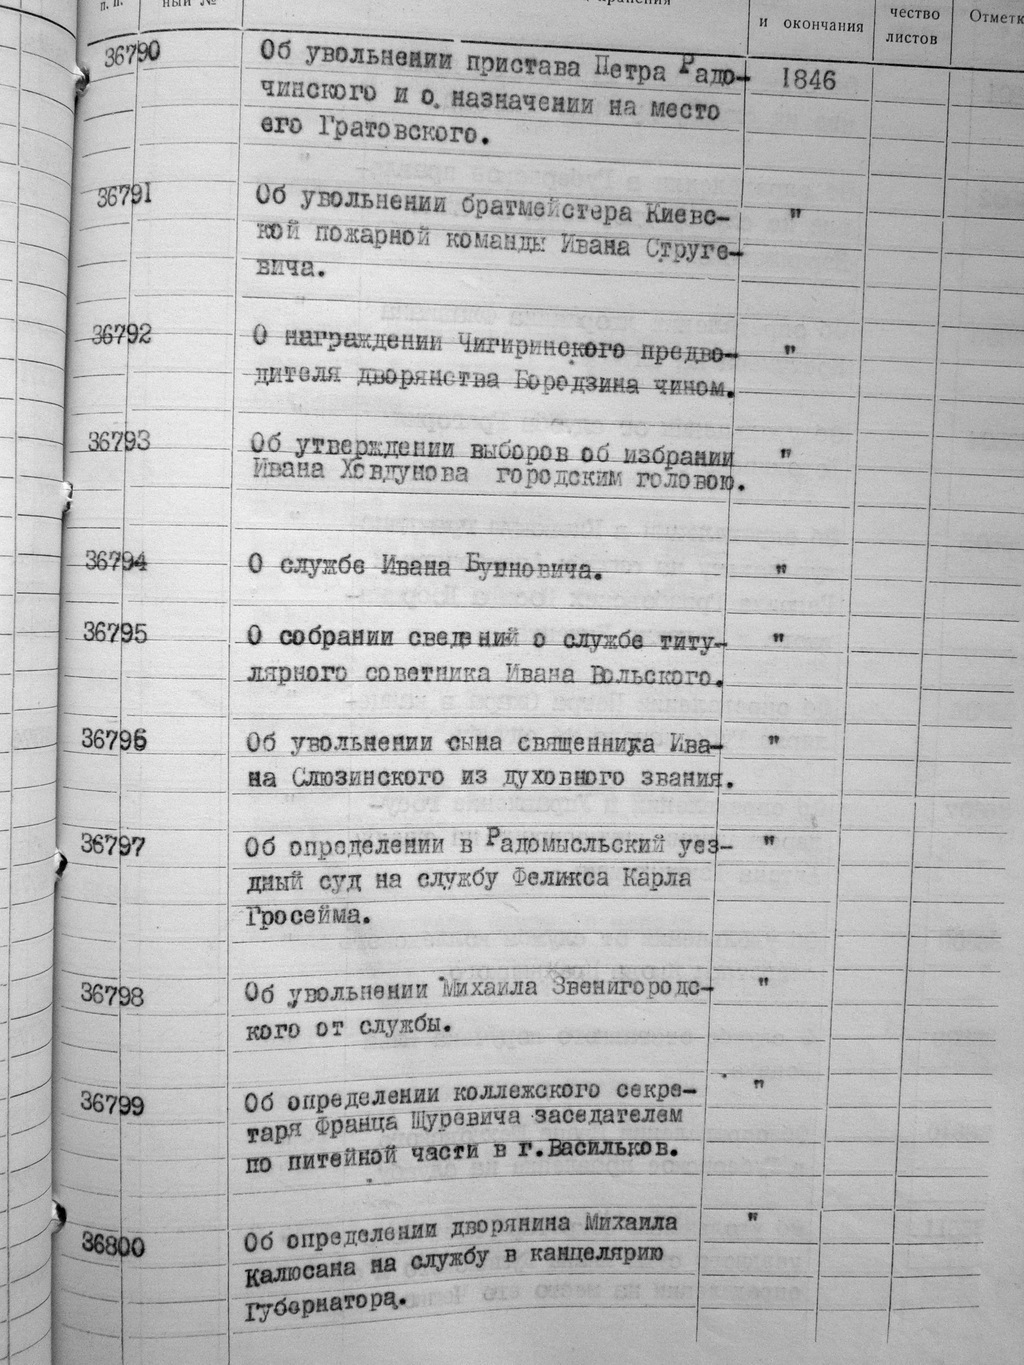 п. п.
ный №
хранения
и окончания
чество
листов
Отметк
36790 Об увольнении пристава Петра Радо- 1846
чинского и о назначении на место
его Гратовского.
36791 Об увольнении братмейстера Киевс- "
кой пожарной команды Ивана Струге-
вича.
36792 О награждении Чигиринского предво- "
дителя дворянства Бородзина чином.
36793 Об утверждении выборов об избрании "
Ивана Ховдунова городским головою.
36794 О службе Ивана Буяновича. "
36795 О собрании сведений о службе титу- "
лярного советника Ивана Вольского.
36796 Об увольнении сына священника Ива- "
на Слюзинского из духовного звания.
36797 Об определении в Радомысльский уез- "
дный суд на службу Феликса Карла
Гросейма.
36798 Об увольнении Михаила Звенигородс- "
кого от службы.
36799 Об определении коллежского секре- "
таря Франца Щуревича заседателем
по питейной части в г.Васильков.
36800 Об определении дворянина Михаила "
Калюсана на службу в канцелярию
Губернатора.